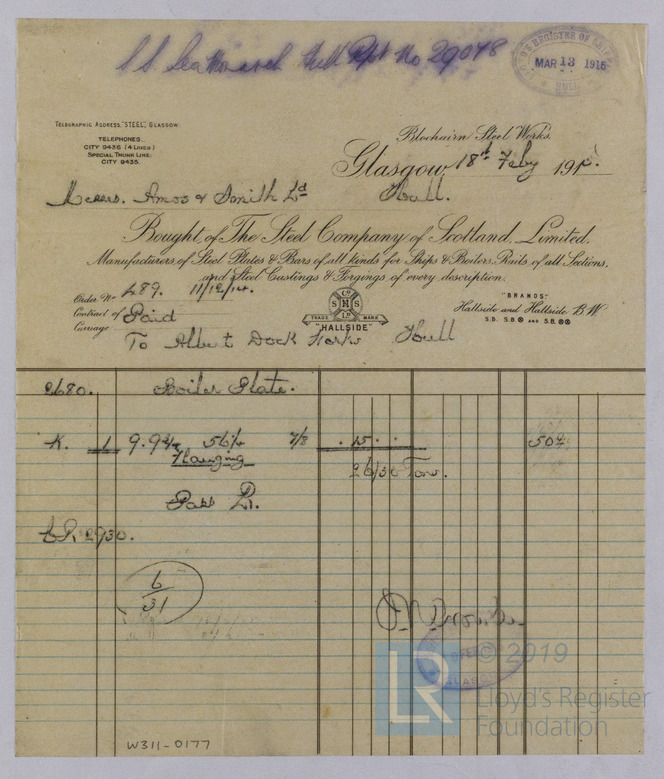 S.S. Seamonarch Hull Rpt No 29048
LLOYD'S REGISTER OF SHIPPING
MAR 13 1915
HULL
TELEGRAPHIC ADDRESS, "STEEL", GLASGOW.
TELEPHONES.
CITY 9436 (4 LINES)
SPECIAL TRUNK LINE.
CITY 9435.
Blochairn Steel Works.
Glasgow, 18th Feby 1915.
Messrs. Amos & Smith Ld Hull.
Bought of The Steel Company of Scotland, Limited,
Manufacturers of Steel Plates & Bars of all kinds for Ships & Boilers, Rails of all Sections,
and Steel Castings & Forgings of every description.
Order No 489. 11/12/14.
Contract of
Carriage Paid
To Albert Dock Works Hull
S Co S
SHS
LD
TRADE MARK
"HALLSIDE"
"BRANDS"
Hallside and Hallside B.W
S.B. S.B⊗ AND S.B.⊗⊗
2680. Boiler Plate.
K. 1 9.9¾ 56¼ 7/8 . 15 . .
Flanging
Tons.
2930.
6/31
GLASGOW
© 2019
LR
Lloyd's Register
Foundation
W311-0177